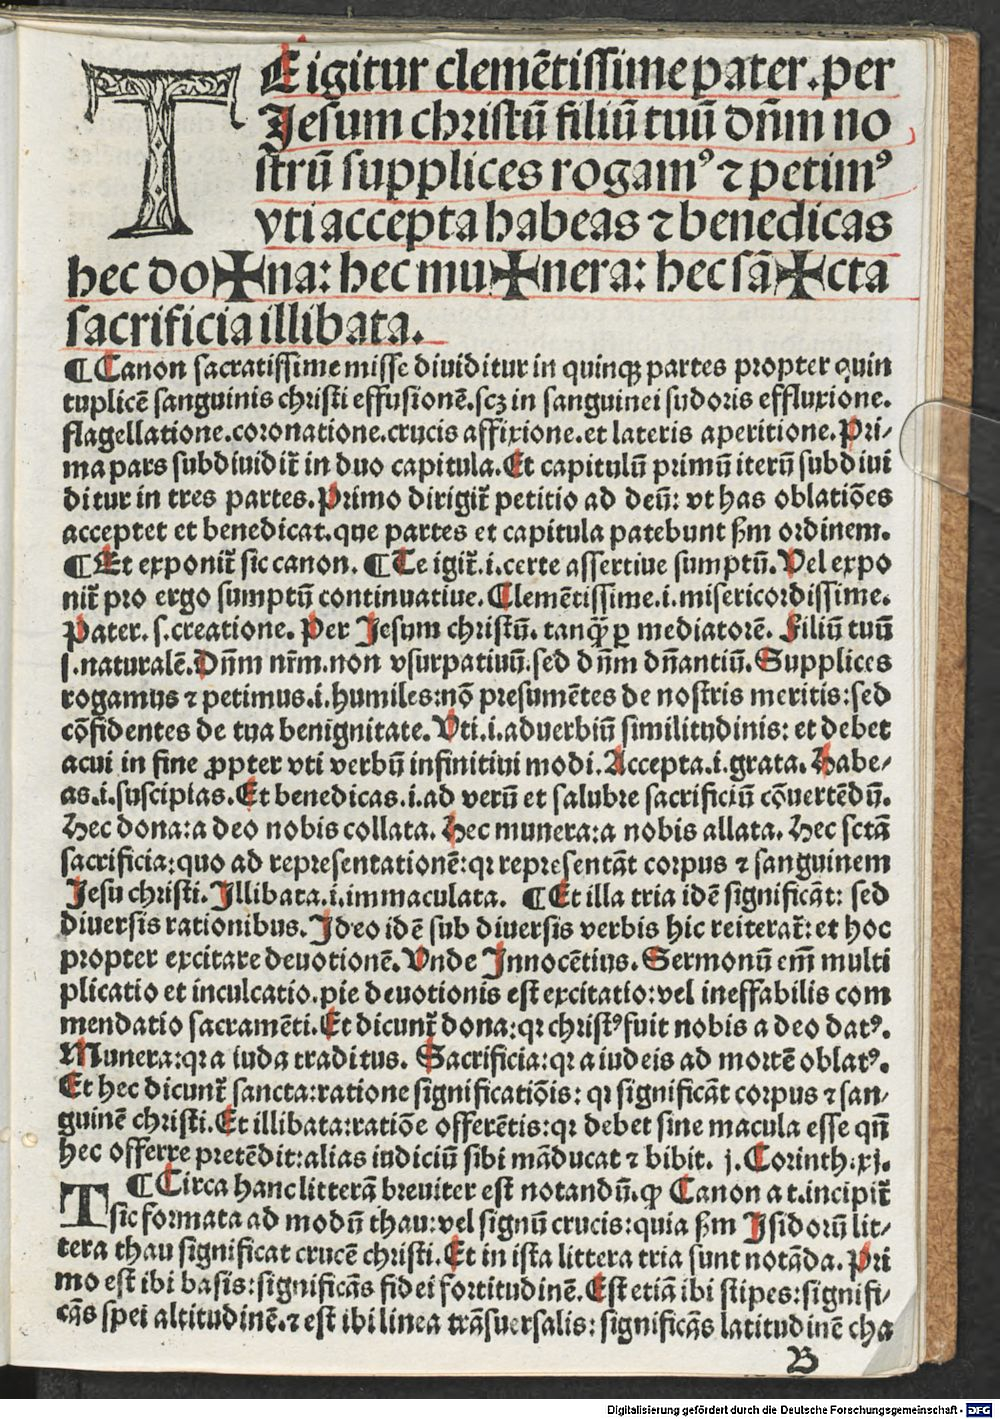 TE igitur clemētissime pater. per
Jesum christū filiū tuū dn̄m no
strū supplices rogamꝰ ⁊ petimꝰ
vti accepta habeas ⁊ benedicas
hec do✠na: hec mu✠nera: hec sā✠cta
sacrificia illibata.
¶Canon sacratissime misse diuiditur in quinqꝫ partes propter quin
tuplicē sanguinis christi effusionē.scꝫ in sanguinei sudoris effluxione.
flagellatione.coronatione.crucis affixione.et lateris aperitione.Pri⸗
ma pars subdiuidit᷑ in duo capitula.Et capitulū primū iterū subdiui
ditur in tres partes.Primo dirigit᷑ petitio ad deū: vt has oblatiōes
acceptet et benedicat.que partes et capitula patebunt ẜm ordinem.
¶Et exponit᷑ sic canon. ¶Te igit᷑.i.certe assertiue sumptū.Vel expo
nit᷑ pro ergo sumptū continuatiue.Clemētissime.i.misericordissime.
Pater.s.creatione.Per Jesum christū.tanꝙ̄ ꝑ mediatorē.Filiū tuū
s.naturalē.Dn̄m nr̄m.non vsurpatiuū.sed dn̄m dn̄antiū.Supplices
rogamus ⁊ petimus.i.humiles:nō presumētes de nostris meritis:sed
cōfidentes de tua benignitate.Vti.i.aduerbiū similitudinis: et debet
acui in fine ꝓpter vti verbū infinitiui modi.Accepta.i.grata.Habe⸗
as.i.suscipias.Et benedicas.i.ad verū et salubre sacrificiū cōuertēdū.
Hec dona:a deo nobis collata.Hec munera:a nobis allata.Hec sctā
sacrificia:quo ad representationē:qꝛ representāt corpus ⁊ sanguinem
Jesu christi.Illibata.i.immaculata. ¶Et illa tria idē significāt: sed
diuersis rationibus.Ideo idē sub diuersis verbis hic reiterat᷑:et hoc
propter excitare deuotionē.Vnde Innocētius.Sermonū em̄ multi
plicatio et inculcatio.pie deuotionis est excitatio:vel ineffabilis com
mendatio sacramēti.Et dicunt᷑ dona:qꝛ christꝰ fuit nobis a deo datꝰ.
Munera:qꝛ a iuda traditus. Sacrificia:qꝛ a iudeis ad mortē oblatꝰ.
Et hec dicunt᷑ sancta:ratione significatiōis: qꝛ significāt corpus ⁊ san⸗
guinē christi.Et illibata:ratiōe offerētis:qꝛ debet sine macula esse qn̄
hec offerre pretēdit:alias iudiciū sibi māducat ⁊ bibit. j.Corinth.xj.
¶Circa hanc litterā breuiter est notandū.ꝙ Canon a t.incipit᷑
T sic formata ad modū thau:vel signū crucis:quia ẜm Isidorū lit⸗
tera thau significat crucē christi.Et in ista littera tria sunt notāda.Pri
mo est ibi basis:significās fidei fortitudinē.Est etiā ibi stipes:signifi⸗
cās spei altitudinē.⁊ est ibi linea trāsuersalis:significās latitudinē cha
B
Digitalisierung gefördert durch die Deutsche Forschungsgemeinschaft - DFG